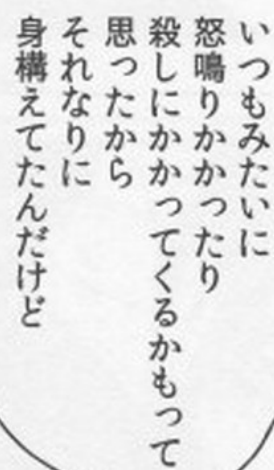 いつもみたいに
怒鳴りかかったり
殺しにかかってくるかもって
思ったから
それなりに
身構えてたんだけど